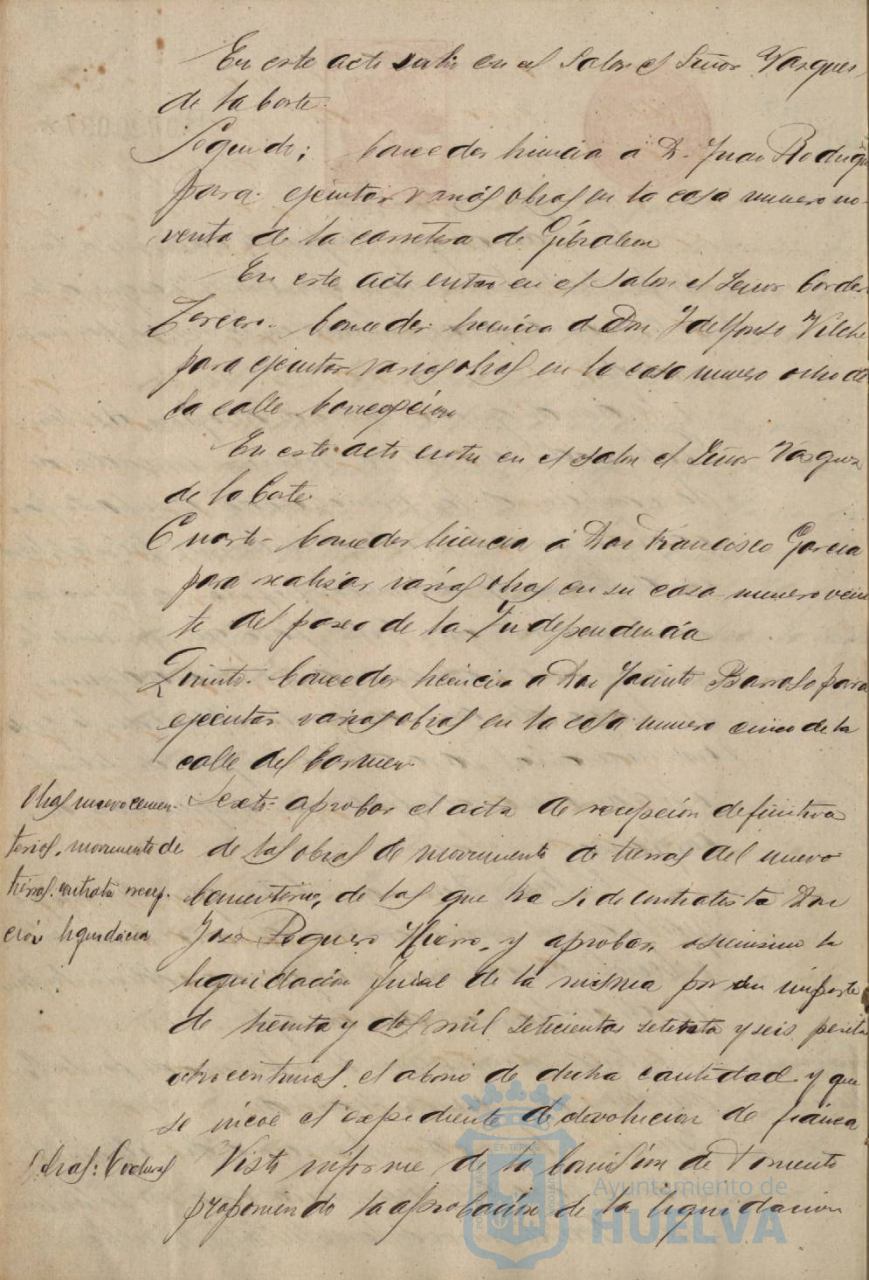 En este acto salio en el Salon el Señor Vazquez
de la Corte.
Segundo; Conceder licencia á D. Juan Rodrigu
para ejecutar varias obras en la casa numero no-
venta de la carretera de Gibraleon
En este acto entra en el Salon el Señor Corde
Tercero. Conceder licencia á Don Ildelfonso Vilche
para ejecutar varias obras en la casa numero ocho de
la calle Concepcion
En este acto entra en el Salon el Señor Vazquez
de la Corte.
Cuarto- Conceder licencia á Don Francisco Garcia
para realizar varias obras en su casa numero vein
te del paseo de la Independencia
Quinto. Conceder licencia a Don Jacinto Barroso para
ejecutar varias obras en la casa numero cinco de la
calle del Carmen
Obras nuevo cemen-
terios, movimento de
tierras. contrata recep-
ción liquidacion
Sexto- aprobar el acta de recepción definitiva
de las obras de movimiento de tierras del nuevo
Cementerio, de las que ha sido contratista Don
José Poquero Hierro, y aprobar, asimismo la
liquidación final de la misma por un importe
de treinta y dos mil setecientas setenta y seis peseta
ocho centimos, el abono de dicha cantidad y que
se incoe el expediente de devolucion de fianza
Obras:
Visto informe de la Comisión de Fomento
proponiendo la aprobación de la liquidacion
Ayuntamiento de
HUELVA